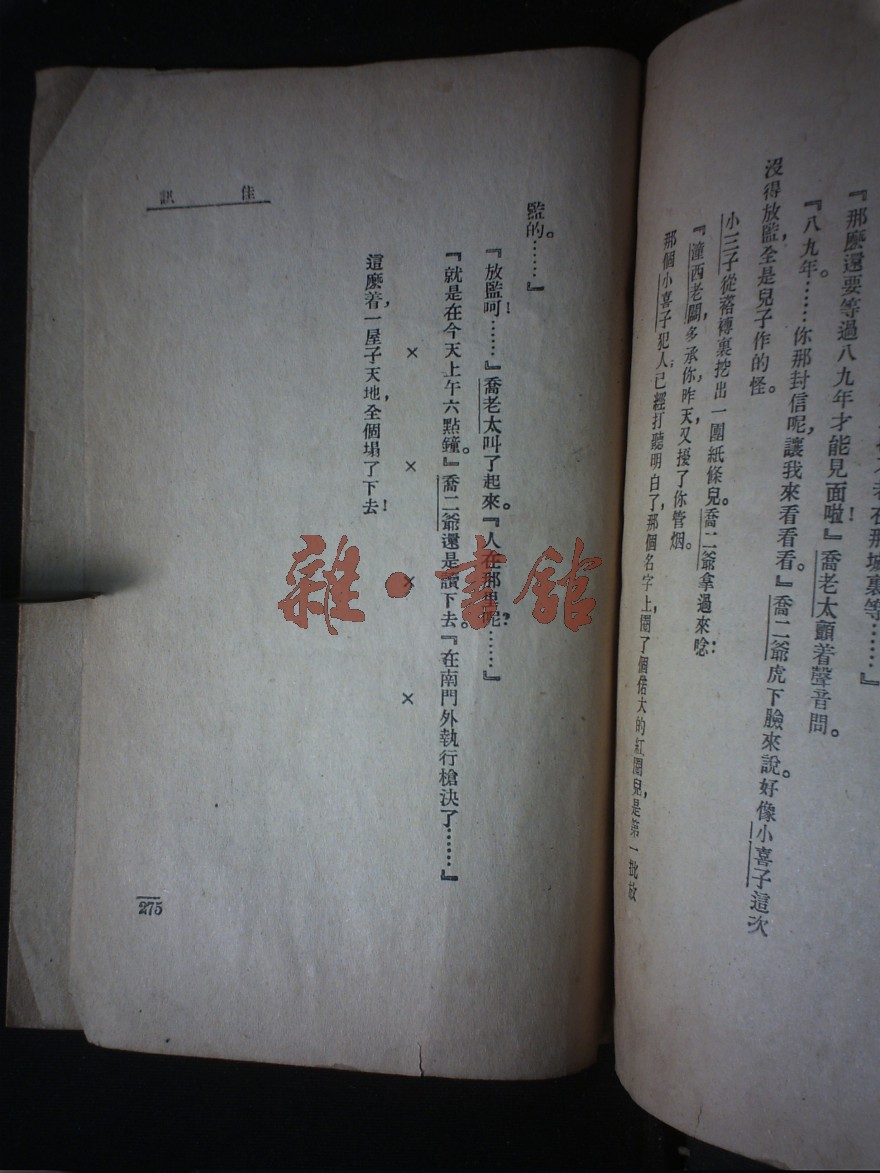 『那麽還要等過八九年才能見面啦！』喬老太顫着聲音問。
『八九年。……你那封信呢，讓我來看看看。』喬二爺虎下臉來說。好像小喜子這次
沒得放監，全是兒子作的怪。
小三子從褡褲裏挖出一團紙條兒。喬二爺拿過來唸：
『潼西老闆，多承你，昨天又擾了你管烟。
那個小喜子犯人，已經打聽明白了，那個名字上，圈了個偌大的紅圈兒，是第一批放
監的。……』
『放監呵！……』喬老太叫了起來。『人在那里呢？……』
『就是在今天上午六點鐘。』喬二爺還是讀下去。『在南門外執行槍決了……』
這麽着，一屋子天地，全個塌了下去！
× × × ×
佳訊
275
雜·書館